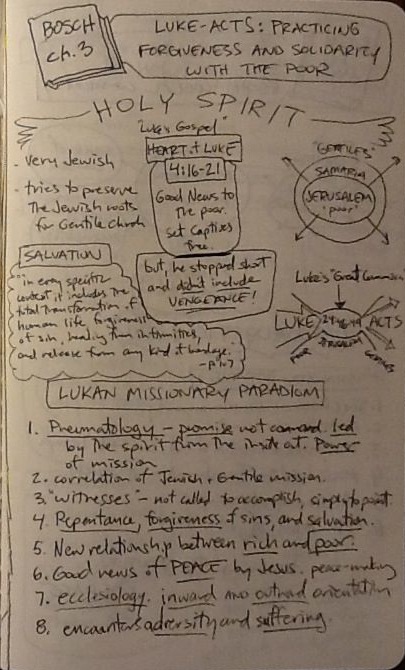 BOSCH
ch. 3
LUKE-ACTS: PRACTICING
FORGIVENESS AND SOLIDARITY
WITH THE POOR
HOLY SPIRIT
"Luke's Gospel"
- very Jewish
- tries to preserve
The Jewish roots
for Gentile church
HEART of LUKE
4:16-21
Good News to
The poor.
set Captives
free.
but, he stopped short
and didn't include
VENGEANCE!
"GENTILES"
SAMARIA
JERUSALEM
"poor"
SALVATION
"in every specific
context it includes the
total transformation of
human life, forgiveness
of sin, healing from infirmities,
and release from any kind of bondage.
- p 107
Luke's "Great Commission"
LUKE 24:46-49 ACTS
POOR JERUSALEM GENTILES
LUKAN MISSIONARY PARADIGM
1. Pneumatology - promise not command. led
by the spirit from the inside out. Power
of mission
2. correlation of Jewish + Gentile mission.
3. "witnesses" - not called to accomplish, simply to point.
4. Repentance, forgiveness of sins, and salvation.
5. New relationship between rich and poor.
6. Good news of PEACE by Jesus. peace-making
7. ecclesiology. inward and outward orientation
8. encounters adversity and suffering.